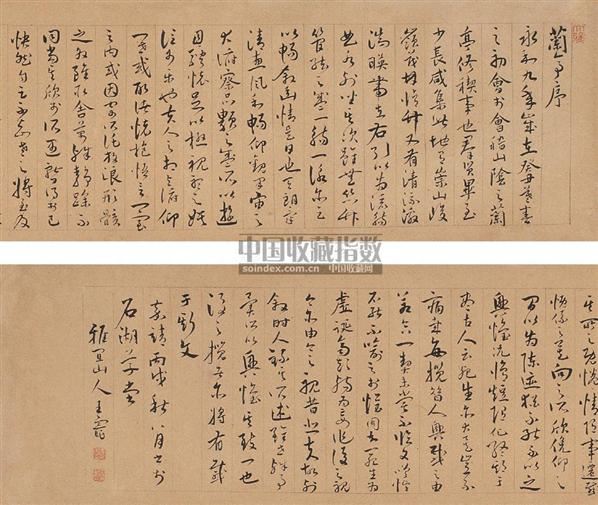 蘭亭序
永和九年歲在癸丑暮春
之初會於會稽山陰之蘭
亭修禊事也群賢畢至
少長咸集此地有崇山峻
嶺茂林脩竹又有清流激
湍映帶左右引以為流觴
曲水列坐其次雖無絲竹
管絃之盛一觴一詠亦足
以暢敘幽情是日也天朗氣
清惠風和暢仰觀宇宙之
大俯察品類之盛所以遊
目騁懷足以極視聽之娛
信可樂也夫人之相與俯仰
一世或取諸懷抱悟言一室
之內或因寄所託放浪形骸
之外雖趣舍萬殊靜躁不
同當其欣於所遇暫得於己
快然自足不知老之將至及
其所之既惓情隨事遷感
慨係之矣向之所欣俛仰之
間以為陳迹猶不能不以之
興懷況脩短隨化終期於
盡古人云死生亦大矣豈不
痛哉每攬昔人興感之由
若合一契未嘗不臨文嗟悼
不能喻之於懷固知一死生為
虛誕齊彭殤為妄作後之視
今亦由今之視昔悲夫故列
敘時人錄其所述雖世殊事
異所以興懷其致一也
後之攬者亦將有感
于斯文
嘉靖丙戌秋八月書於
石湖草堂
雅宜山人王寵
中国收藏指数
soindex.com.cn 中国收藏网